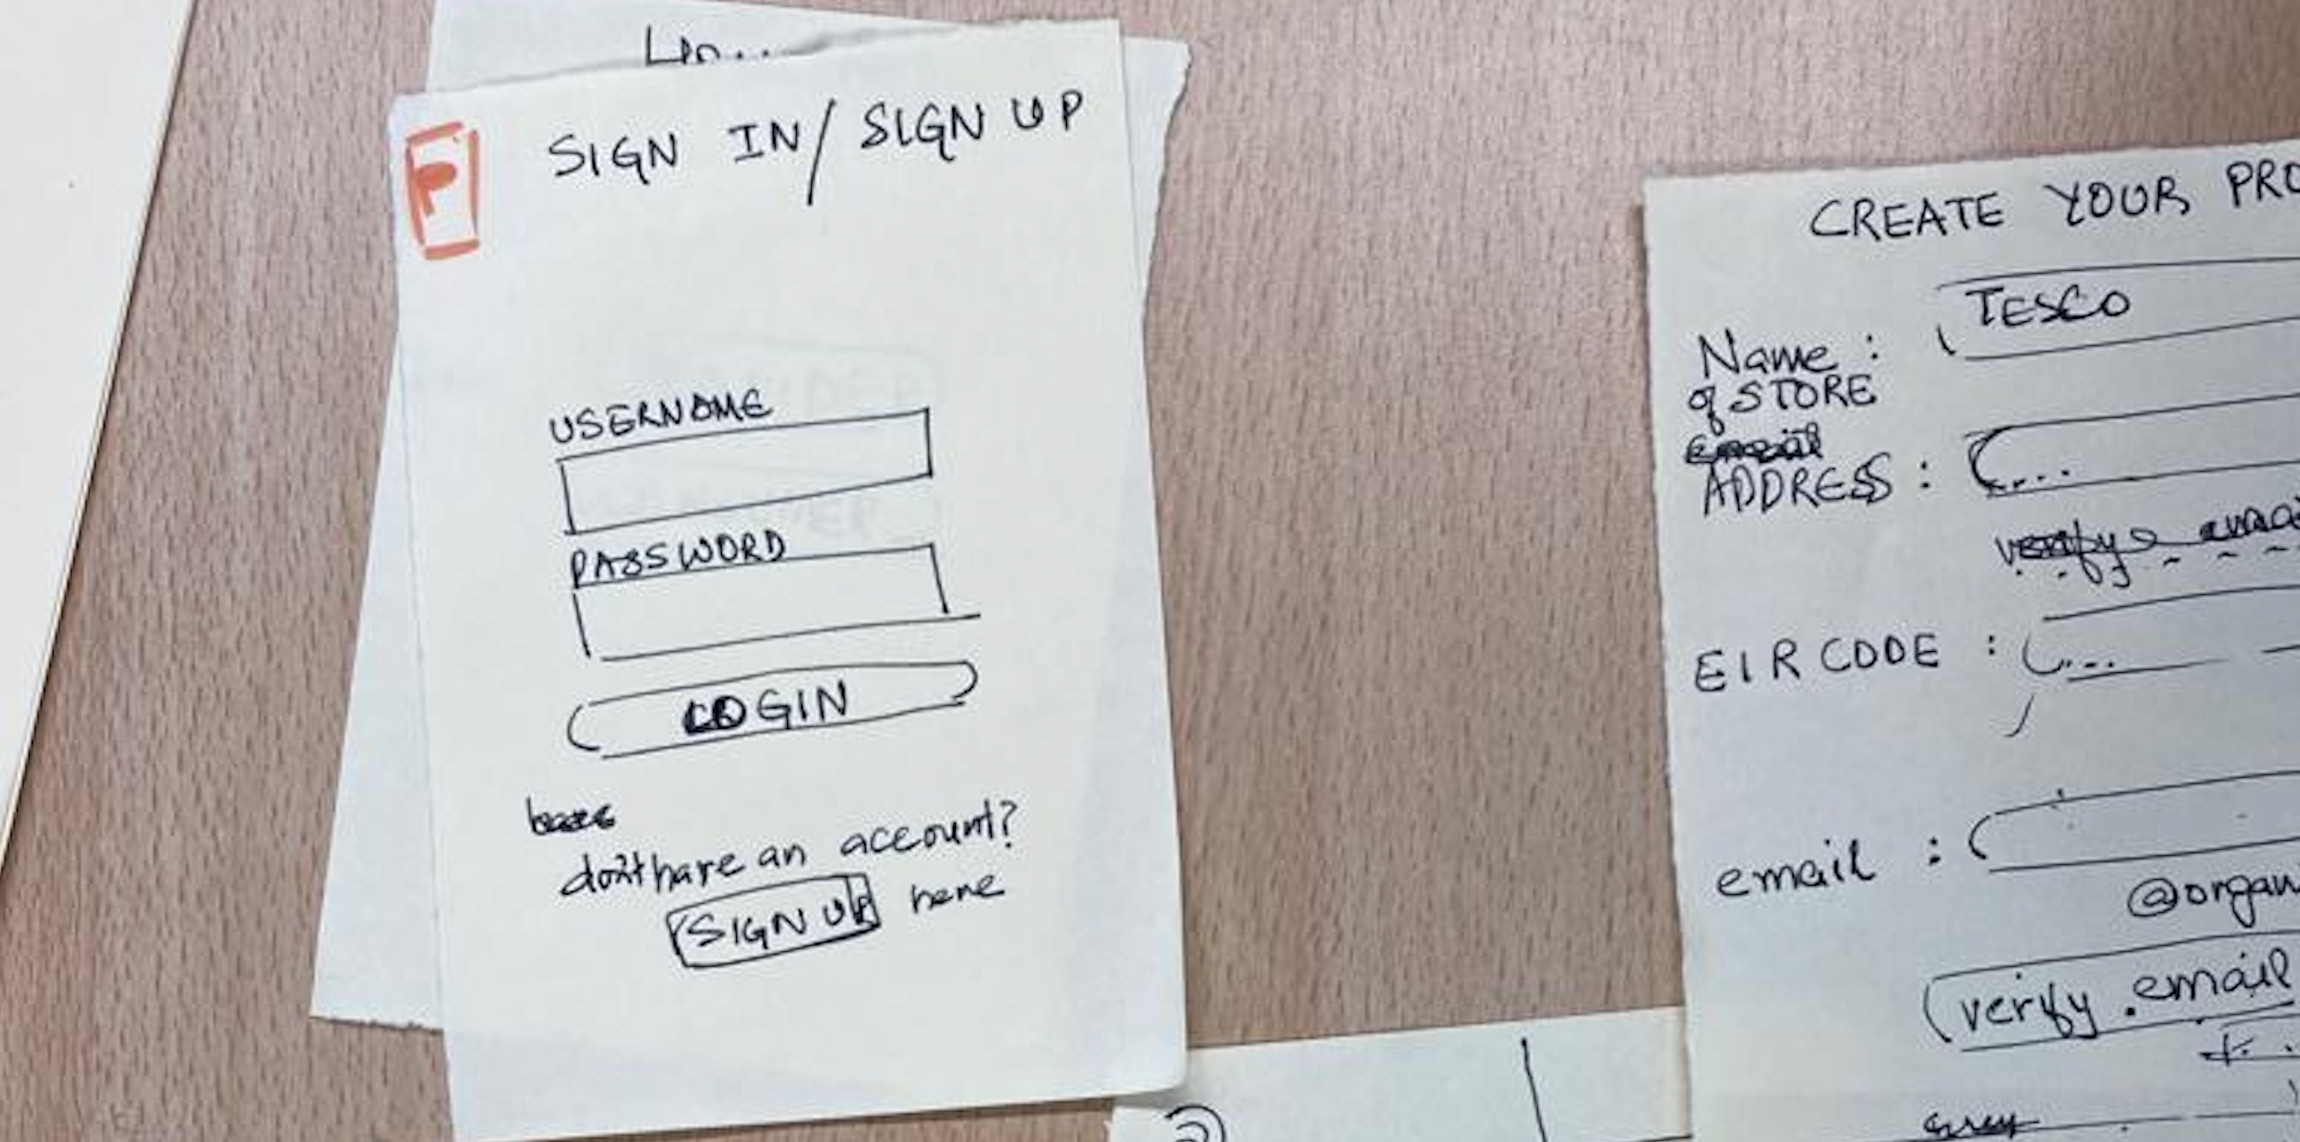 P
SIGN IN/SIGN UP
USERNAME
PASSWORD
LOGIN
don't have an account?
SIGN UP here
CREATE YOUR PRO
Name :
of STORE
TESCO
ADDRESS :
...
verify
EIRCODE :
...
email :
@organ
verify email